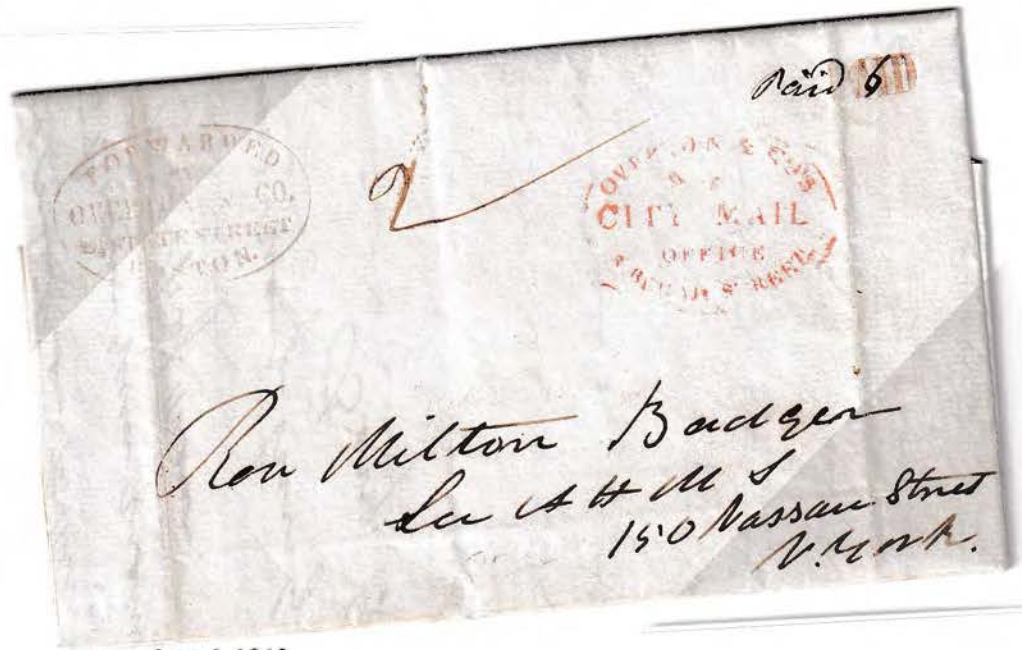 Paid 6
FORWARDED
CO.
STREET
BOSTON.
2
OVERTON & CO'S
CITY MAIL
OFFICE
STREET
Rev Milton Badger
Sec A H M S
150 Nassau Street
N. York.